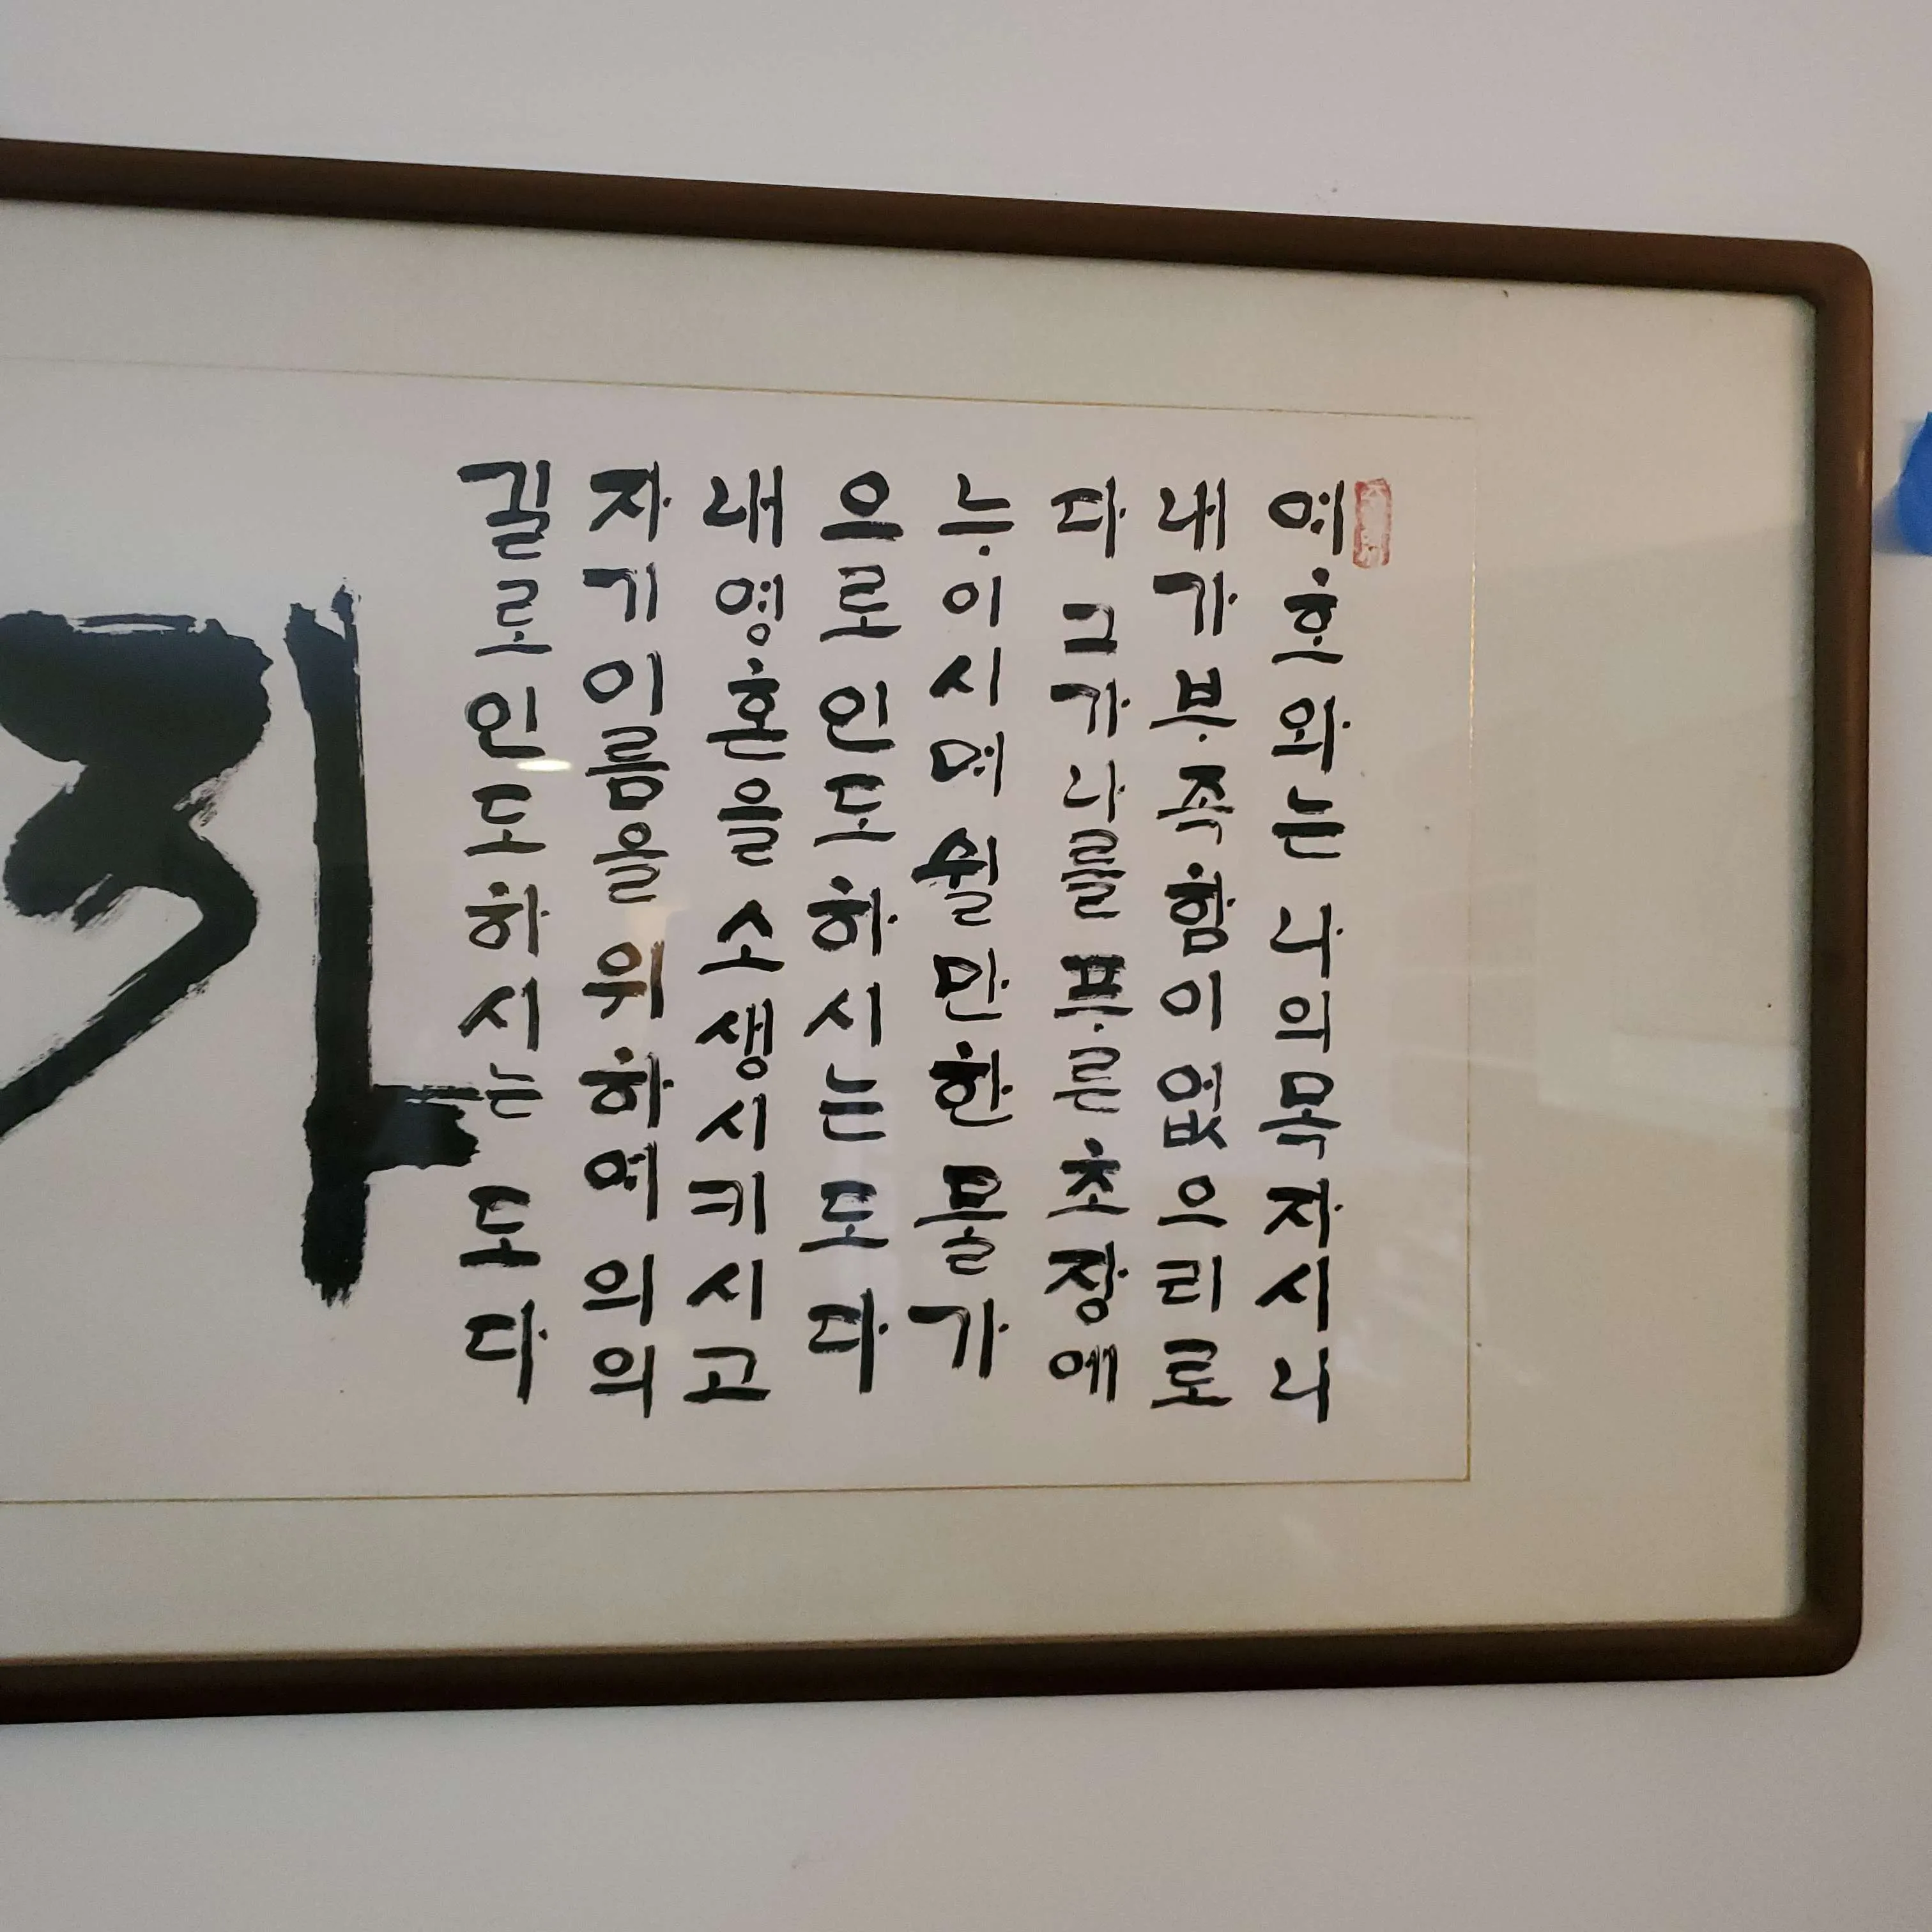 여호와는 나의 목자시니
내가 부족함이 없으리로
다 그가 나를 푸른 초장에
누이시며 쉴만한 물가
으로 인도하시는도다
내 영혼을 소생시키시고
자기 이름을 위하여 의의
길로 인도하시는도다